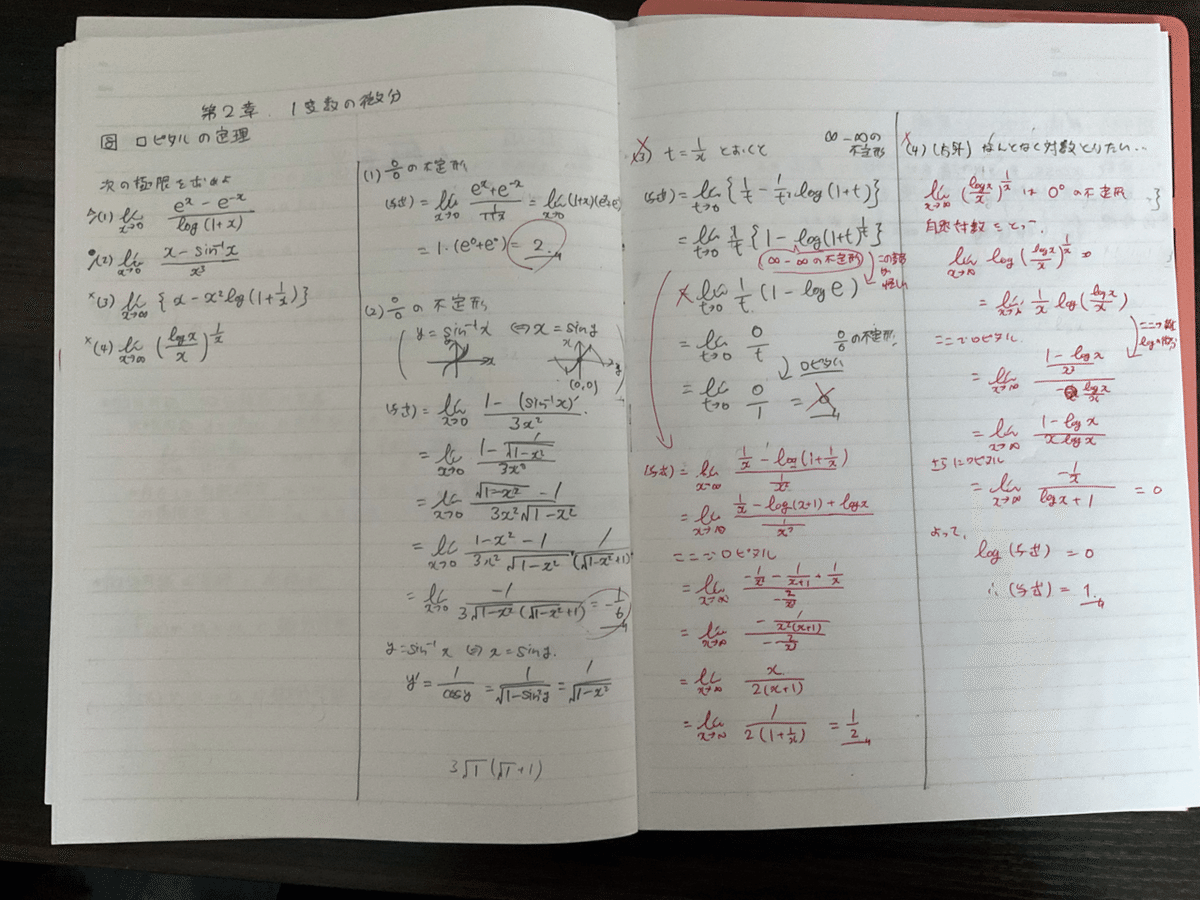 第2章. 1変数の微分
図 ロピタルの定理
次の極限を求めよ
(1) lim x→0 (e^x − e^−x)/log(1+x)
(2) lim x→0 (x − sin⁻¹x)/x³
×(3) lim x→∞ {x − x² log(1+1/x)}
×(4) lim x→∞ (log x/x)^(1/x)
(1) 0/0 の不定形
(与式) = lim x→0 (e^x + e^−x)/(1/(1+x)) = lim x→0 (1+x)(e^x+e
= 1・(e⁰+e⁰) = 2.
(2) 0/0 の不定形
( y = sin⁻¹x ⇔ x = sin y
x
x y
(0,0) )
(与式) = lim x→0 (1 − (sin⁻¹x)')/3x²
= lim x→0 (1 − 1/√(1−x²))/3x²
= lim x→0 (√(1−x²) − 1)/(3x²√(1−x²))
= lim x→0 (1−x²−1)/(3x²√(1−x²)) · 1/(√(1−x²)+1)
= lim x→0 −1/(3√(1−x²)(√(1−x²)+1)) = −1/6
y = sin⁻¹x ⇔ x = sin y.
y' = 1/cos y = 1/√(1−sin²y) = 1/√(1−x²)
3√1(√1+1)
×(3) t = 1/x とおくと
∞−∞の不定形
(与式) = lim t→0 {1/t − 1/t² log(1+t)}
= lim t→0 1/t {1 − log(1+t)^(1/t)}
(∞−∞の不定形)
× lim t→0 1/t (1 − log e)
= lim t→0 0/t
0/0の不定形
ロピタル
= lim t→0 0/1 = 0
(与式) = lim x→∞ (1/x − log(1+1/x))/(1/x²)
= lim x→∞ (1/x − log(x+1) + log x)/(1/x²)
ここでロピタル
= lim x→∞ (−1/x² − 1/(x+1) + 1/x)/(−2/x³)
= lim x→∞ (−1/(x²(x+1)))/(−2/x³)
= lim x→∞ x/(2(x+1))
= lim x→∞ 1/(2(1+1/x)) = 1/2
×(4) (方針) なんとなく対数とりたい…
lim x→∞ (log x/x)^(1/x) は 0⁰ の不定形
自然対数をとって.
lim x→∞ log(log x/x)^(1/x)
= lim x→∞ 1/x log(log x/x)
ここでロピタル
= lim x→∞ ((1 − log x)/x²)/(log x/x)
= lim x→∞ (1 − log x)/(x log x)
さらにロピタル
= lim x→∞ (−1/x)/(log x + 1) = 0
よって,
log (与式) = 0
∴ (与式) = 1.